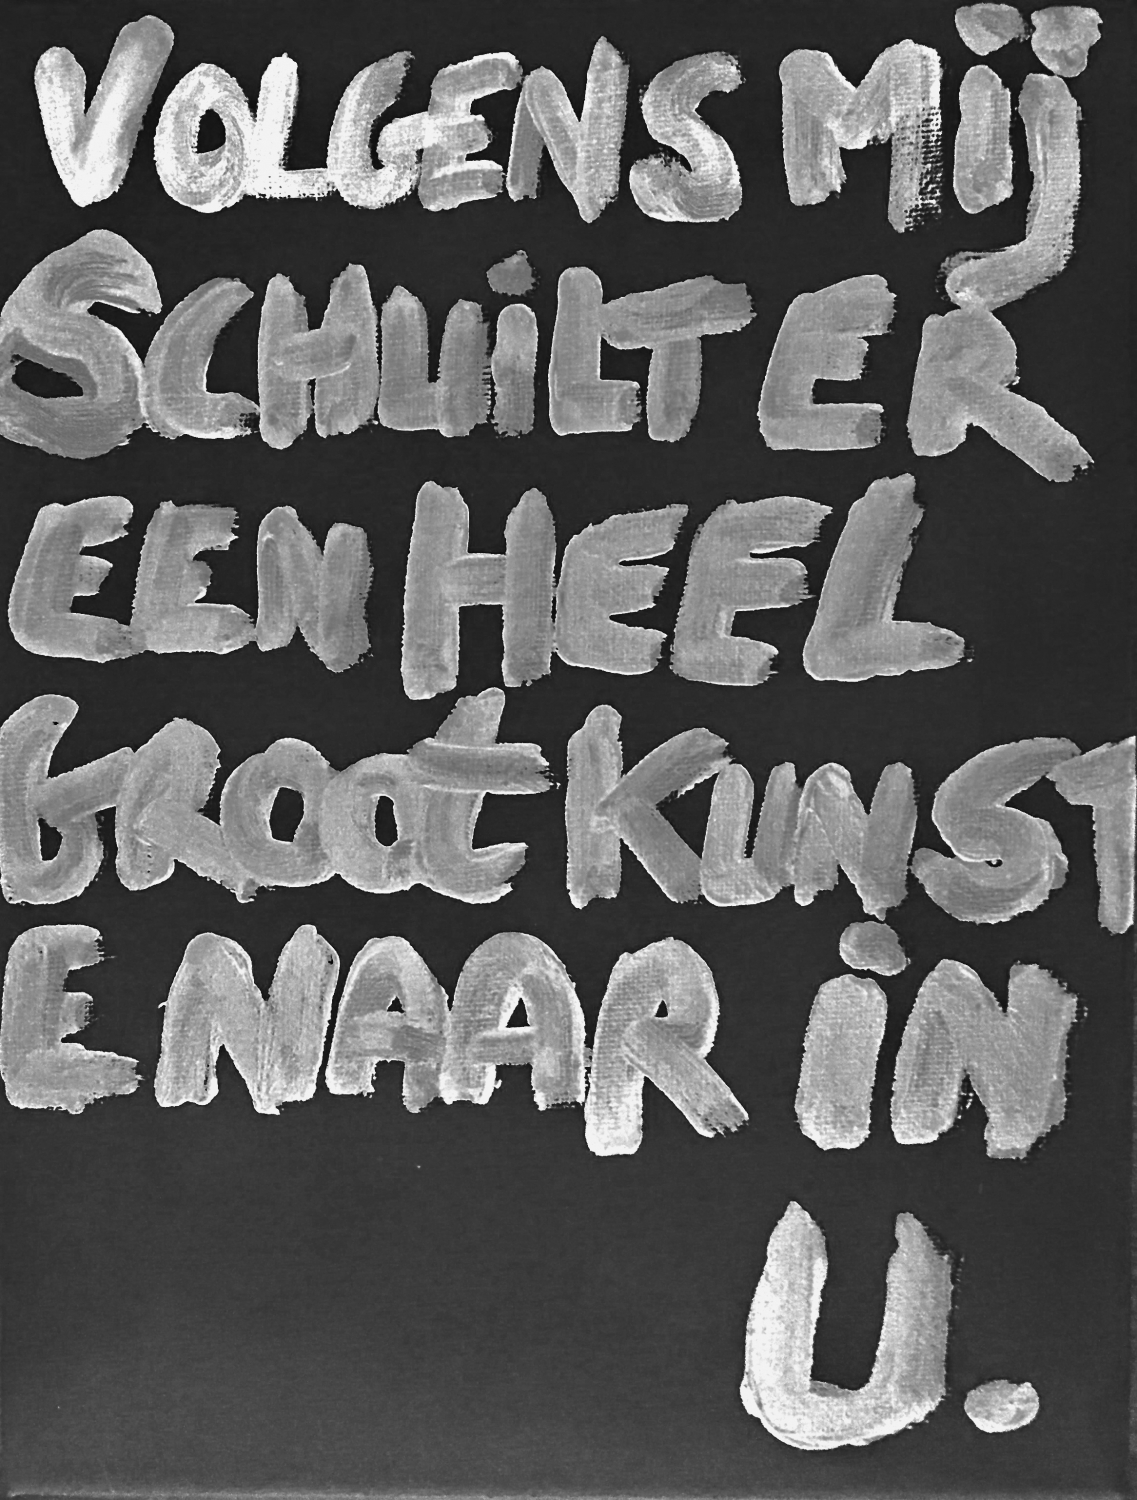 VOLGENS Mij
SCHUiLT ER
EEN HEEL
GROOt KUNST
ENAAR iN
U.